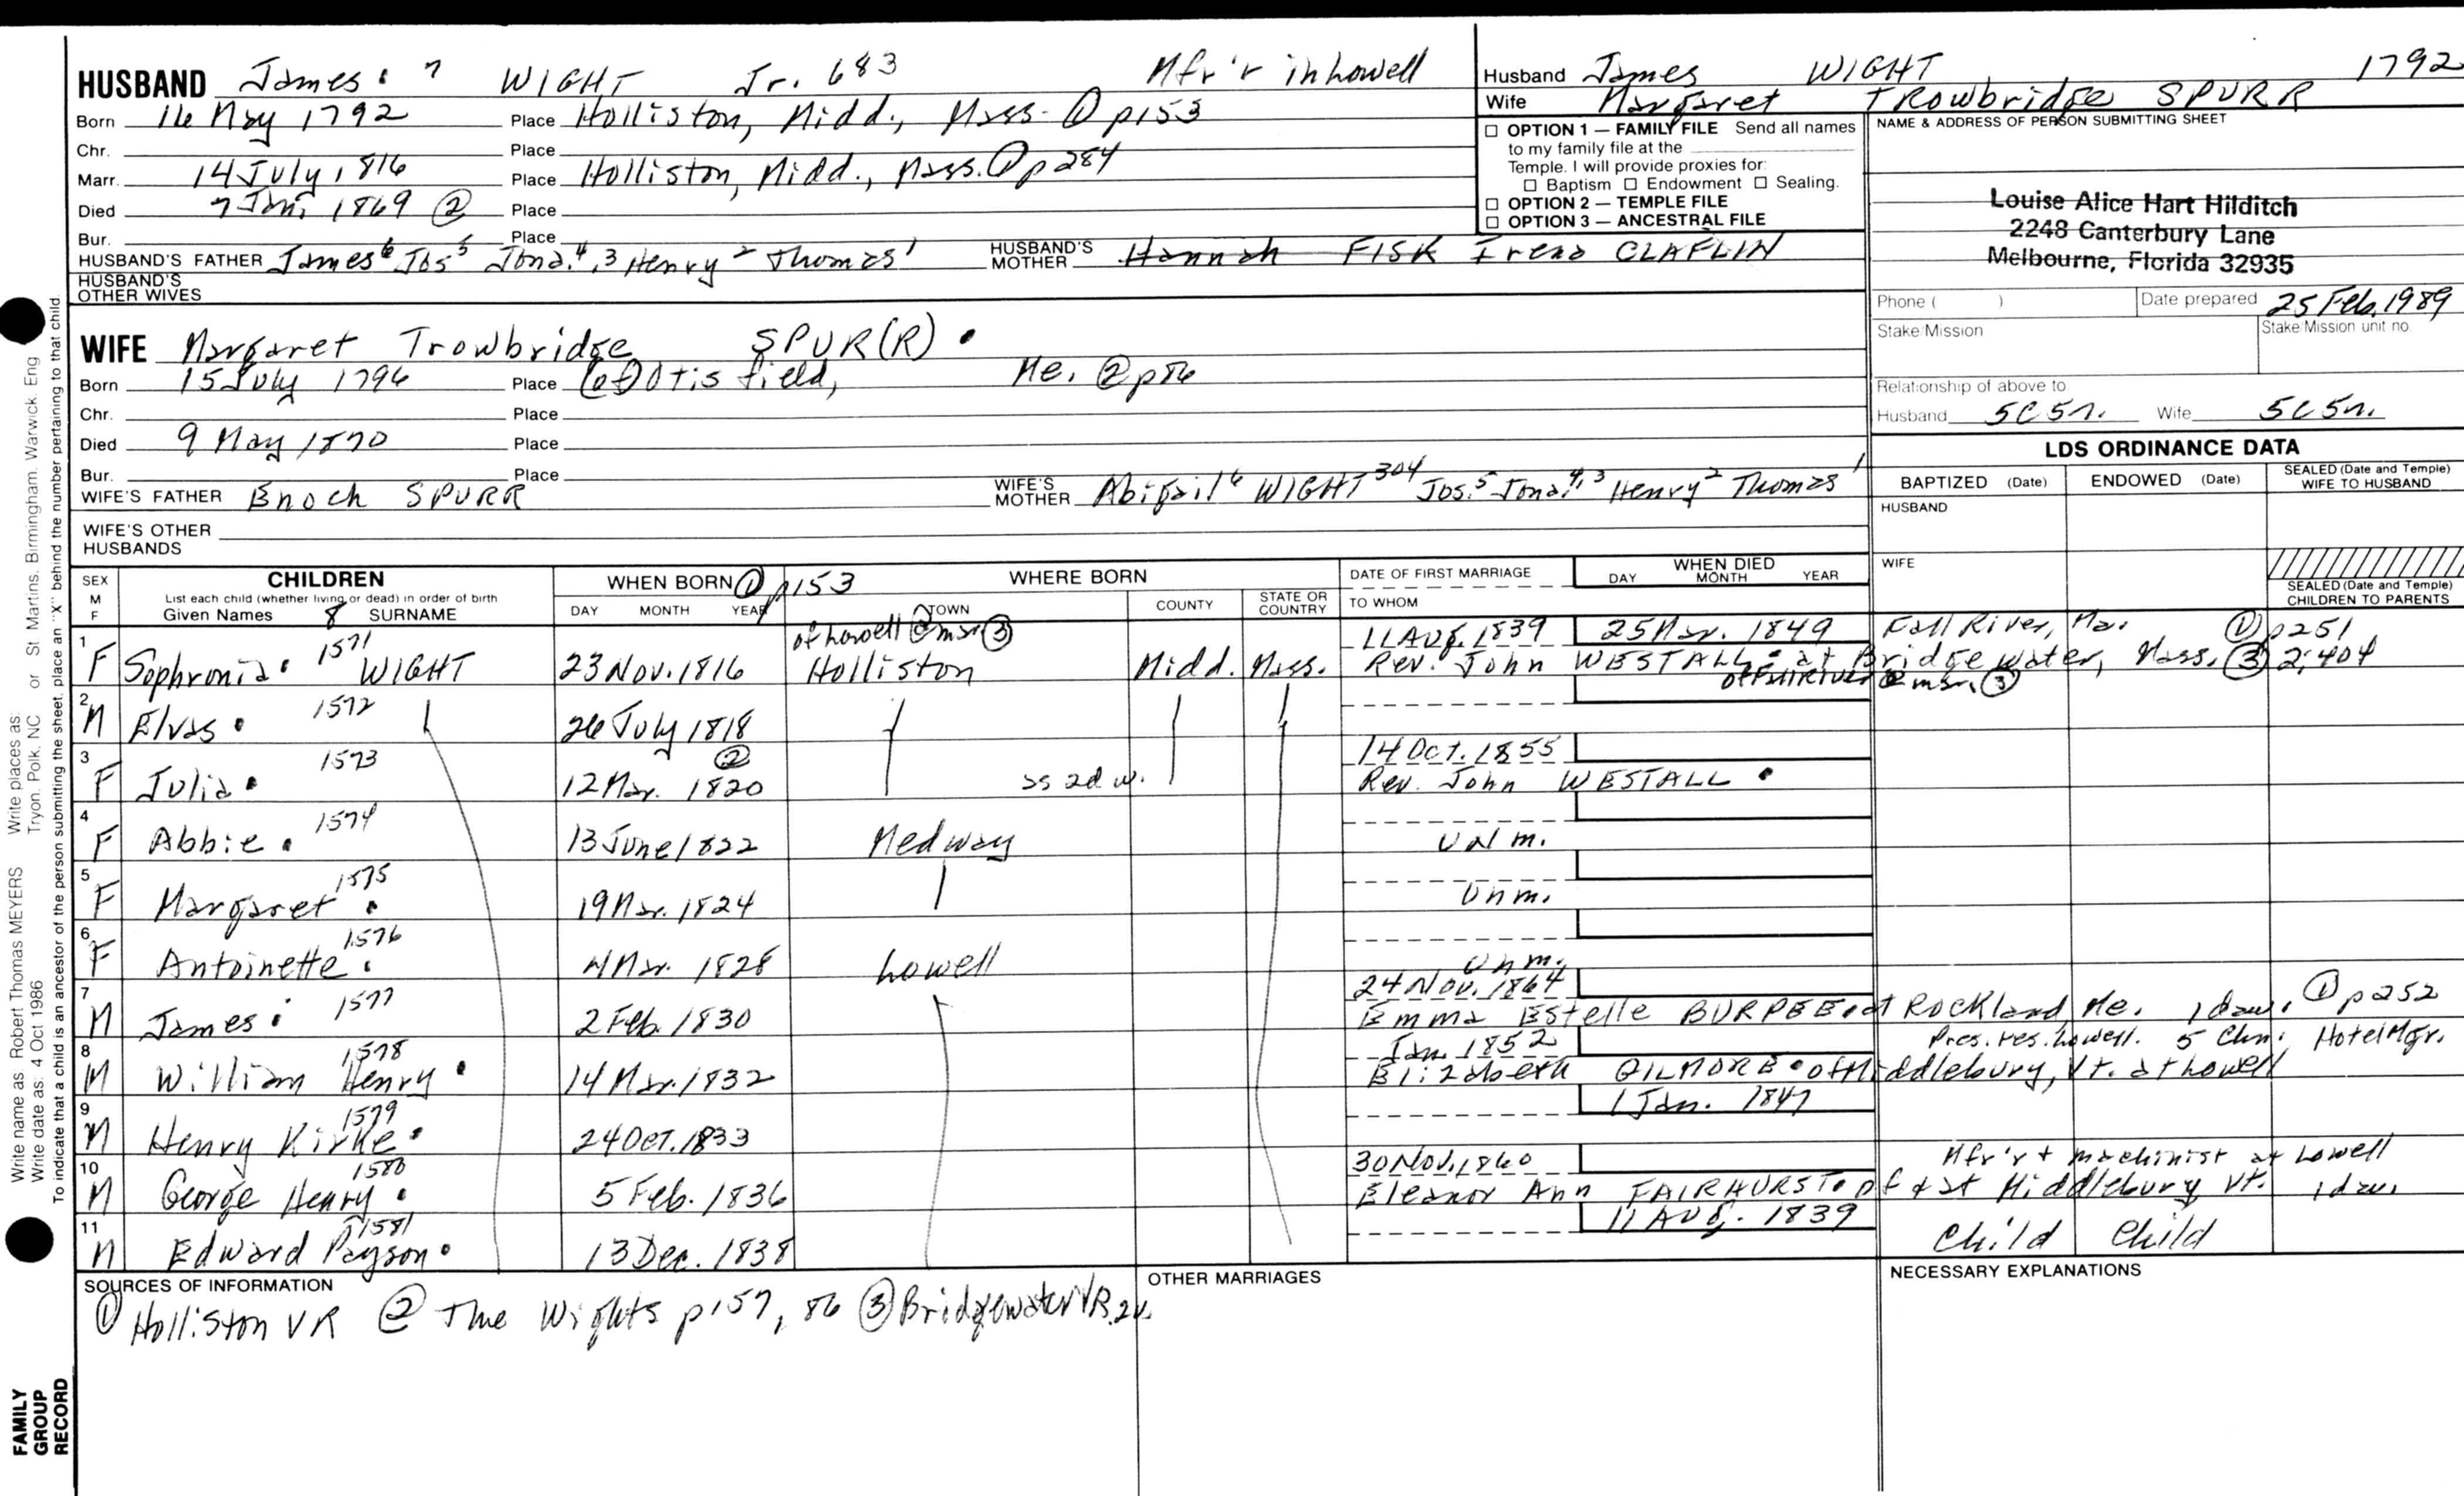 HUSBAND James 7 WIGHT Jr. 683 Mfr'r in Lowell
Born 16 May 1792 Place Holliston, Midd., Mass. ① p153
Chr. Place
Marr. 14 July 1816 Place Holliston, Midd., Mass. ① p284
Died 7 Jan. 1869 ② Place
Bur. Place
HUSBAND'S FATHER James⁶ Jos⁵ Jona.⁴,³ Henry² Thomas¹ HUSBAND'S MOTHER Hannah FISK Irena CLAFLIN
HUSBAND'S OTHER WIVES
WIFE Margaret Trowbridge SPUR(R)
Born 15 July 1796 Place (of) Otisfield, Me. ② p86
Chr. Place
Died 9 May 1870 Place
Bur. Place
WIFE'S FATHER Enoch SPURR WIFE'S MOTHER Abigail⁶ WIGHT³⁰⁴ Jos.⁵ Jona.⁴,³ Henry² Thomas¹
WIFE'S OTHER HUSBANDS
Husband James WIGHT 1792
Wife Margaret Trowbridge SPURR
☐ OPTION 1 — FAMILY FILE Send all names
to my family file at the
Temple. I will provide proxies for:
☐ Baptism ☐ Endowment ☐ Sealing.
☐ OPTION 2 — TEMPLE FILE
☐ OPTION 3 — ANCESTRAL FILE
NAME & ADDRESS OF PERSON SUBMITTING SHEET
Louise Alice Hart Hilditch
2248 Canterbury Lane
Melbourne, Florida 32935
Phone ( ) Date prepared 25 Feb. 1989
Stake/Mission Stake/Mission unit no.
Relationship of above to
Husband 5C5r. Wife 5C5r.
LDS ORDINANCE DATA
BAPTIZED (Date) ENDOWED (Date) SEALED (Date and Temple) WIFE TO HUSBAND
HUSBAND
WIFE
SEALED (Date and Temple) CHILDREN TO PARENTS
SEX M F CHILDREN
List each child (whether living or dead) in order of birth
Given Names 8 SURNAME
WHEN BORN ① p153
DAY MONTH YEAR
WHERE BORN
TOWN COUNTY STATE OR COUNTRY
DATE OF FIRST MARRIAGE
TO WHOM
WHEN DIED
DAY MONTH YEAR
of Lowell @ mar. ③ 11 Aug. 1839 25 Mar. 1849 Fall River, Ma. ① p251
1 F Sophronia 1571 WIGHT 23 Nov. 1816 Holliston Midd. Mass. Rev. John WESTALL at Bridgewater, Mass. ③ 2:404
of Fall River @ mar. ③
2 M Elvas 1572 26 July 1818
②
14 Oct. 1855
3 F Julia 1573 12 Mar. 1820 as 2d w. Rev. John WESTALL
4 F Abbie 1574 13 June 1822 Medway Unm.
5 F Margaret 1575 19 Mar. 1824 Unm.
6 F Antoinette 1576 4 Mar. 1828 Lowell Unm.
24 Nov. 1864
7 M James 1577 2 Feb. 1830 Emma Estelle BURPEE at Rockland Me. 1 dau. ① p252
Jan. 1852 Pres. res. Lowell. 5 Chn. Hotel Mgr.
8 M William Henry 1578 14 Mar. 1832 Elizabeth GILMORE of Middlebury, Vt. at Lowell
1 Jan. 1847
9 M Henry Kirke 1579 24 Oct. 1833
30 Nov. 1860 Mfr'r + machinist at Lowell
10 M George Henry 1580 5 Feb. 1836 Eleanor Ann FAIRHURST of + at Middlebury Vt. 1 dau.
11 Aug. 1839
11 M Edward Payson 1581 13 Dec. 1838 Child Child
SOURCES OF INFORMATION
① Holliston VR ② The Wights p157, 86 ③ Bridgewater VR. 2v.
OTHER MARRIAGES
NECESSARY EXPLANATIONS
Write name as: Robert Thomas MEYERS Write places as: Tryon, Polk, NC or St. Martins, Birmingham, Warwick, Eng
Write date as: 4 Oct 1986
To indicate that a child is an ancestor of the person submitting the sheet, place an "X" behind the number pertaining to that child.
FAMILY
GROUP
RECORD